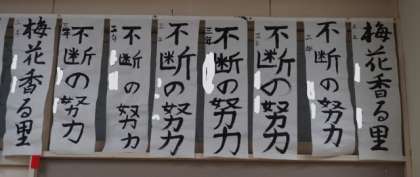 梅花香る里
不断の努力
不断の努力
不断の努力
三年
不断の努力
不断の努力
不断の努力
梅花香る里